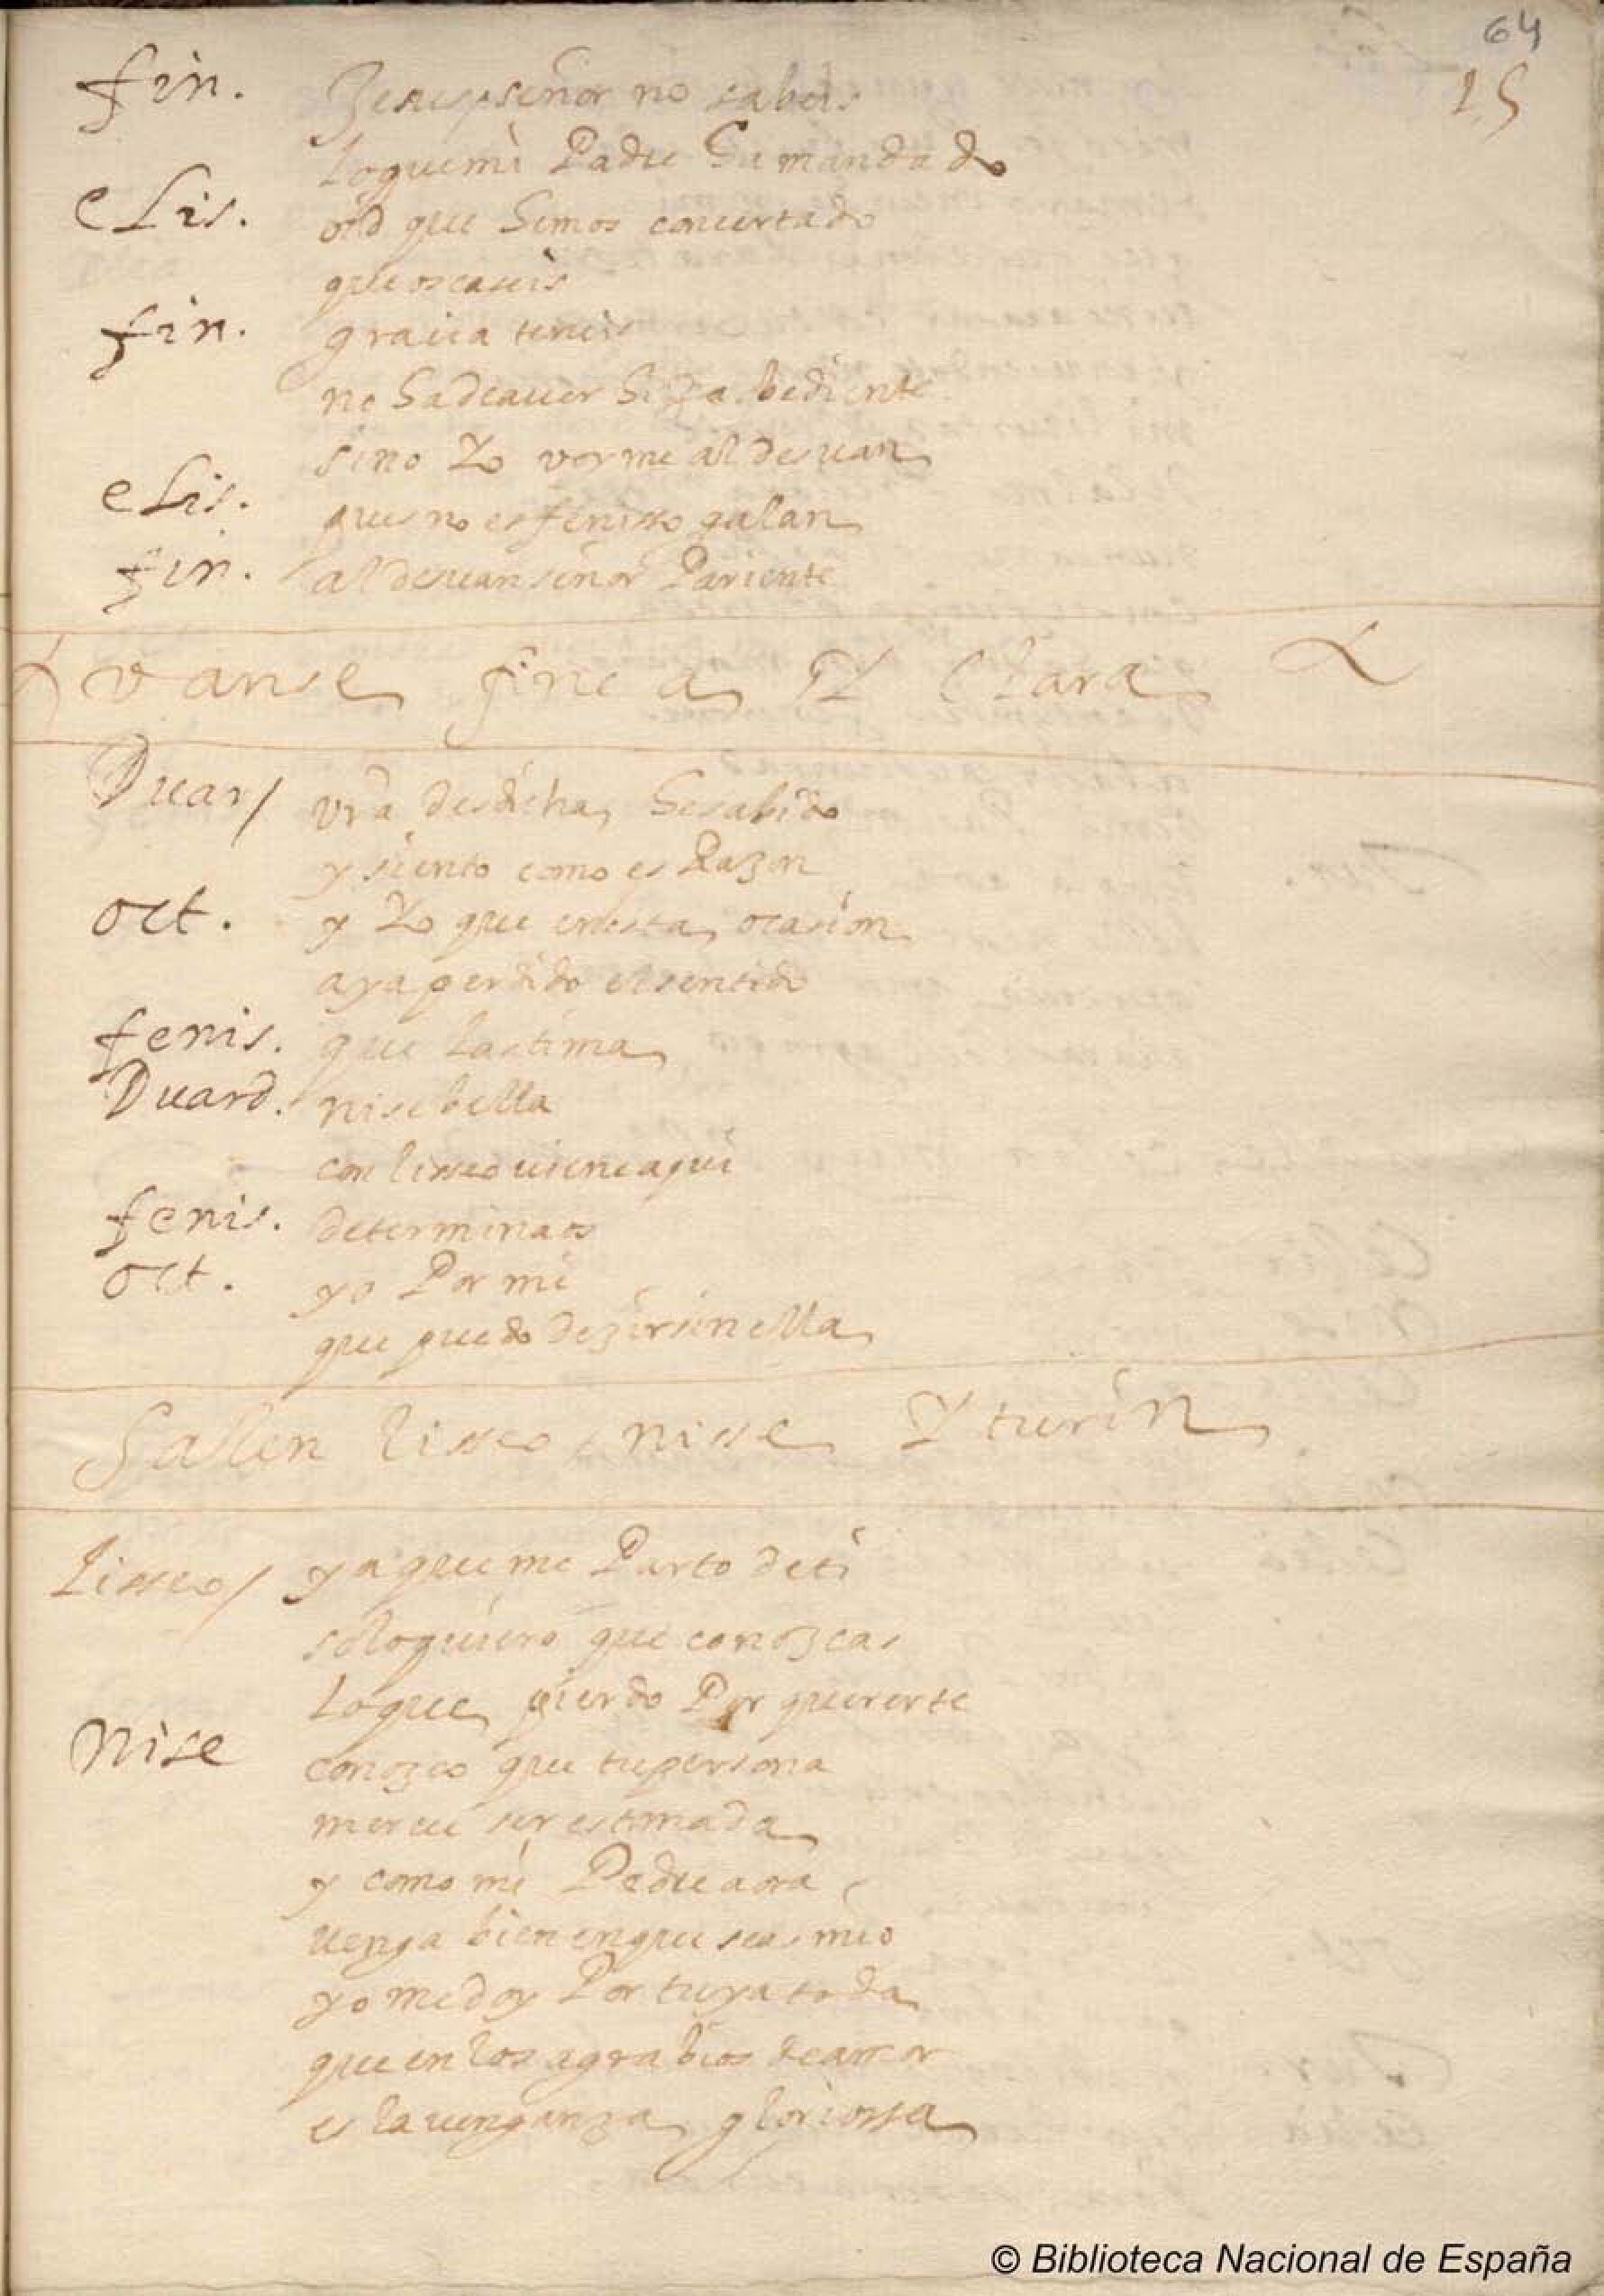 64
25
fin. Jesus señor no sabeis
loque mi Padre Ha mandado
elis. oid que Hemos concertado
que os caseis
fin. gracia teneis
no Hadeauer Hija obediente
sino Yo voyme al desuan
elis. pues no es fenisso galan
fin. al desuan señor Pariente
vanse finea Y Clara
Duar/ vra desdicha He sabido
y siento como es Razon
oct. y Yo que en esta ocasion
aya perdido el sentido
fenis. que lastima
Duard. nise bella
con lisseo uiene aqui
fenis. determinaos
oct. yo Por mi
que puedo dezir sin ella
Salen lisseo, nisse Y turin
Lisseo/ ya que me Parto de ti
solo quiero que conozcas
Lo que pierdo Por quererte
Nise conozco que tu persona
mereçe ser estimada
y como mi Padre aora
uenga bien en que seas mio
yo me doy Por tuya toda
que en los agrabios de amor
es la uenganza gloriossa
© Biblioteca Nacional de España